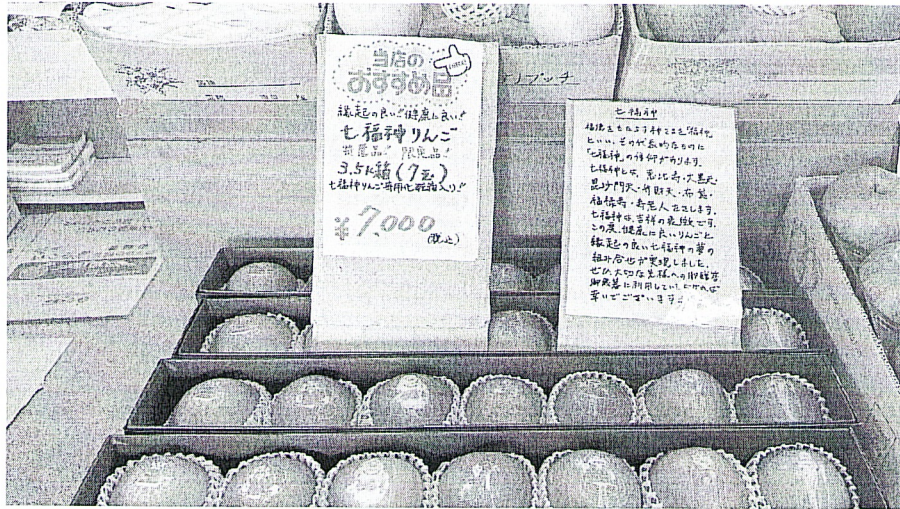 当店の
おすすめ品
縁起の良い!健康に良い!!
七福神りんご
特産品! 限定品!
3.5K箱(7玉)
七福神りんご専用化粧箱入り!!
¥7,000
(税込)
七福神
福徳をもたらす神さまを「福神」
といい、その代表的なものに
「七福神」の信仰があります。
七福神とは、恵比寿・大黒天・
毘沙門天・弁財天・布袋・
福禄寿・寿老人をさします。
七福神は、吉祥の象徴です。
この度、健康に良いりんごと
縁起の良い七福神の夢の
組み合せが実現しました。
ぜひ、大切な先様への御贈答
御歳暮に利用していただければ
幸いでございます。